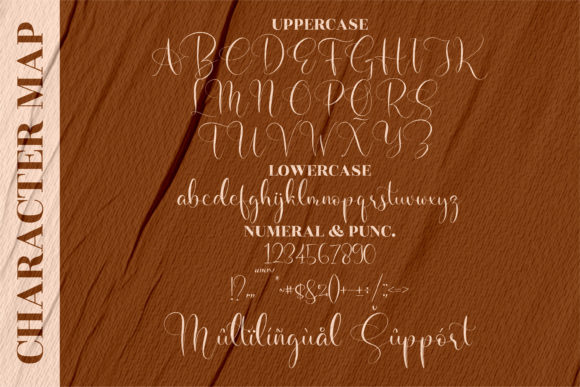 CHARACTER MAP
UPPERCASE
ABCDEFGHIJK
LMNOPQRS
TUVWXYZ
LOWERCASE
abcdefghijklmnopqrstuvwxyz
NUMERAL & PUNC.
1234567890
Mûltïlíñgùål Šûppórt